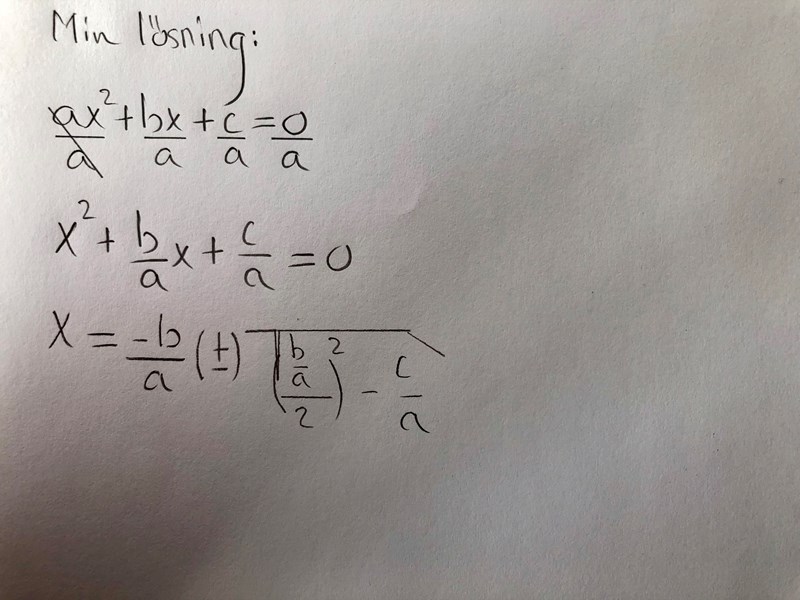 Min lösning:
ax²/a + bx/a + c/a = 0/a
x² + b/a x + c/a = 0
x = -b/a (±) √((b/a)/2)² - c/a